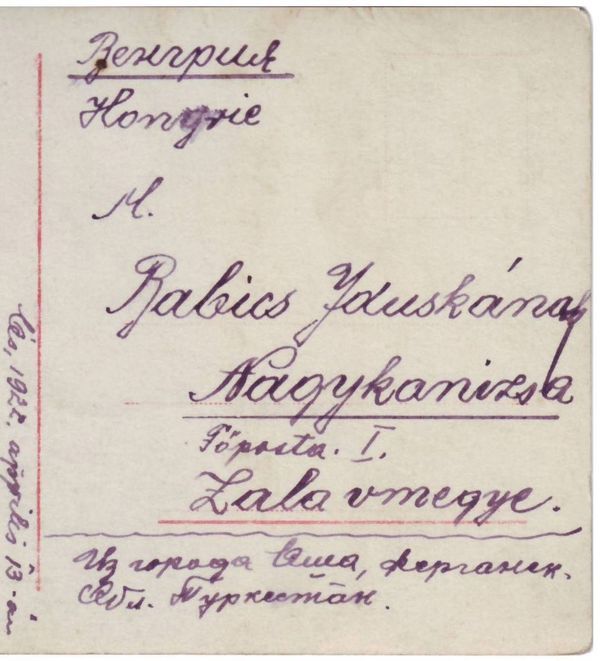 Венгрия
Hongrie
M.
Babics Jduskának
Nagykanizsa
Főposta. I.
Zala vmegye.
Из города Оша, Ферганск.
Обл. Туркестан.
1922. április 13-án